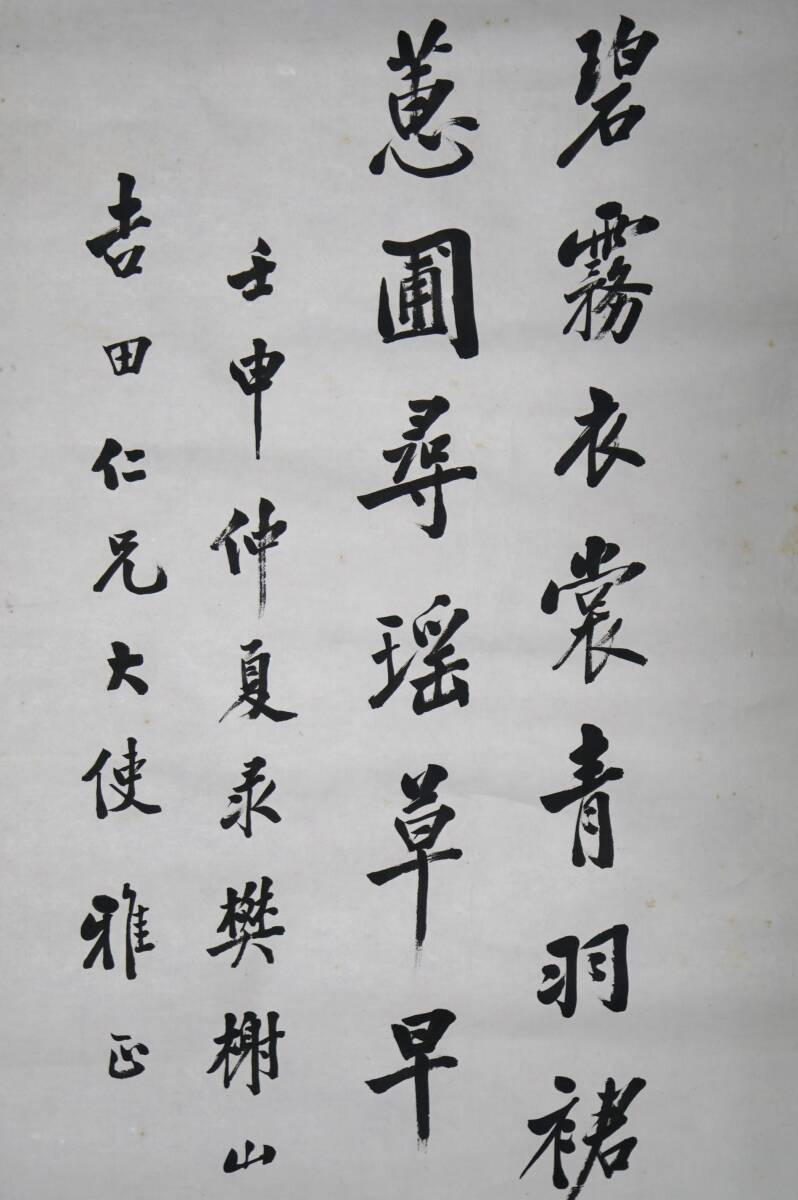 碧霧衣裳青羽裙
蕙圃尋瑶草早
壬申仲夏录樊榭山
吉田仁兄大使雅正